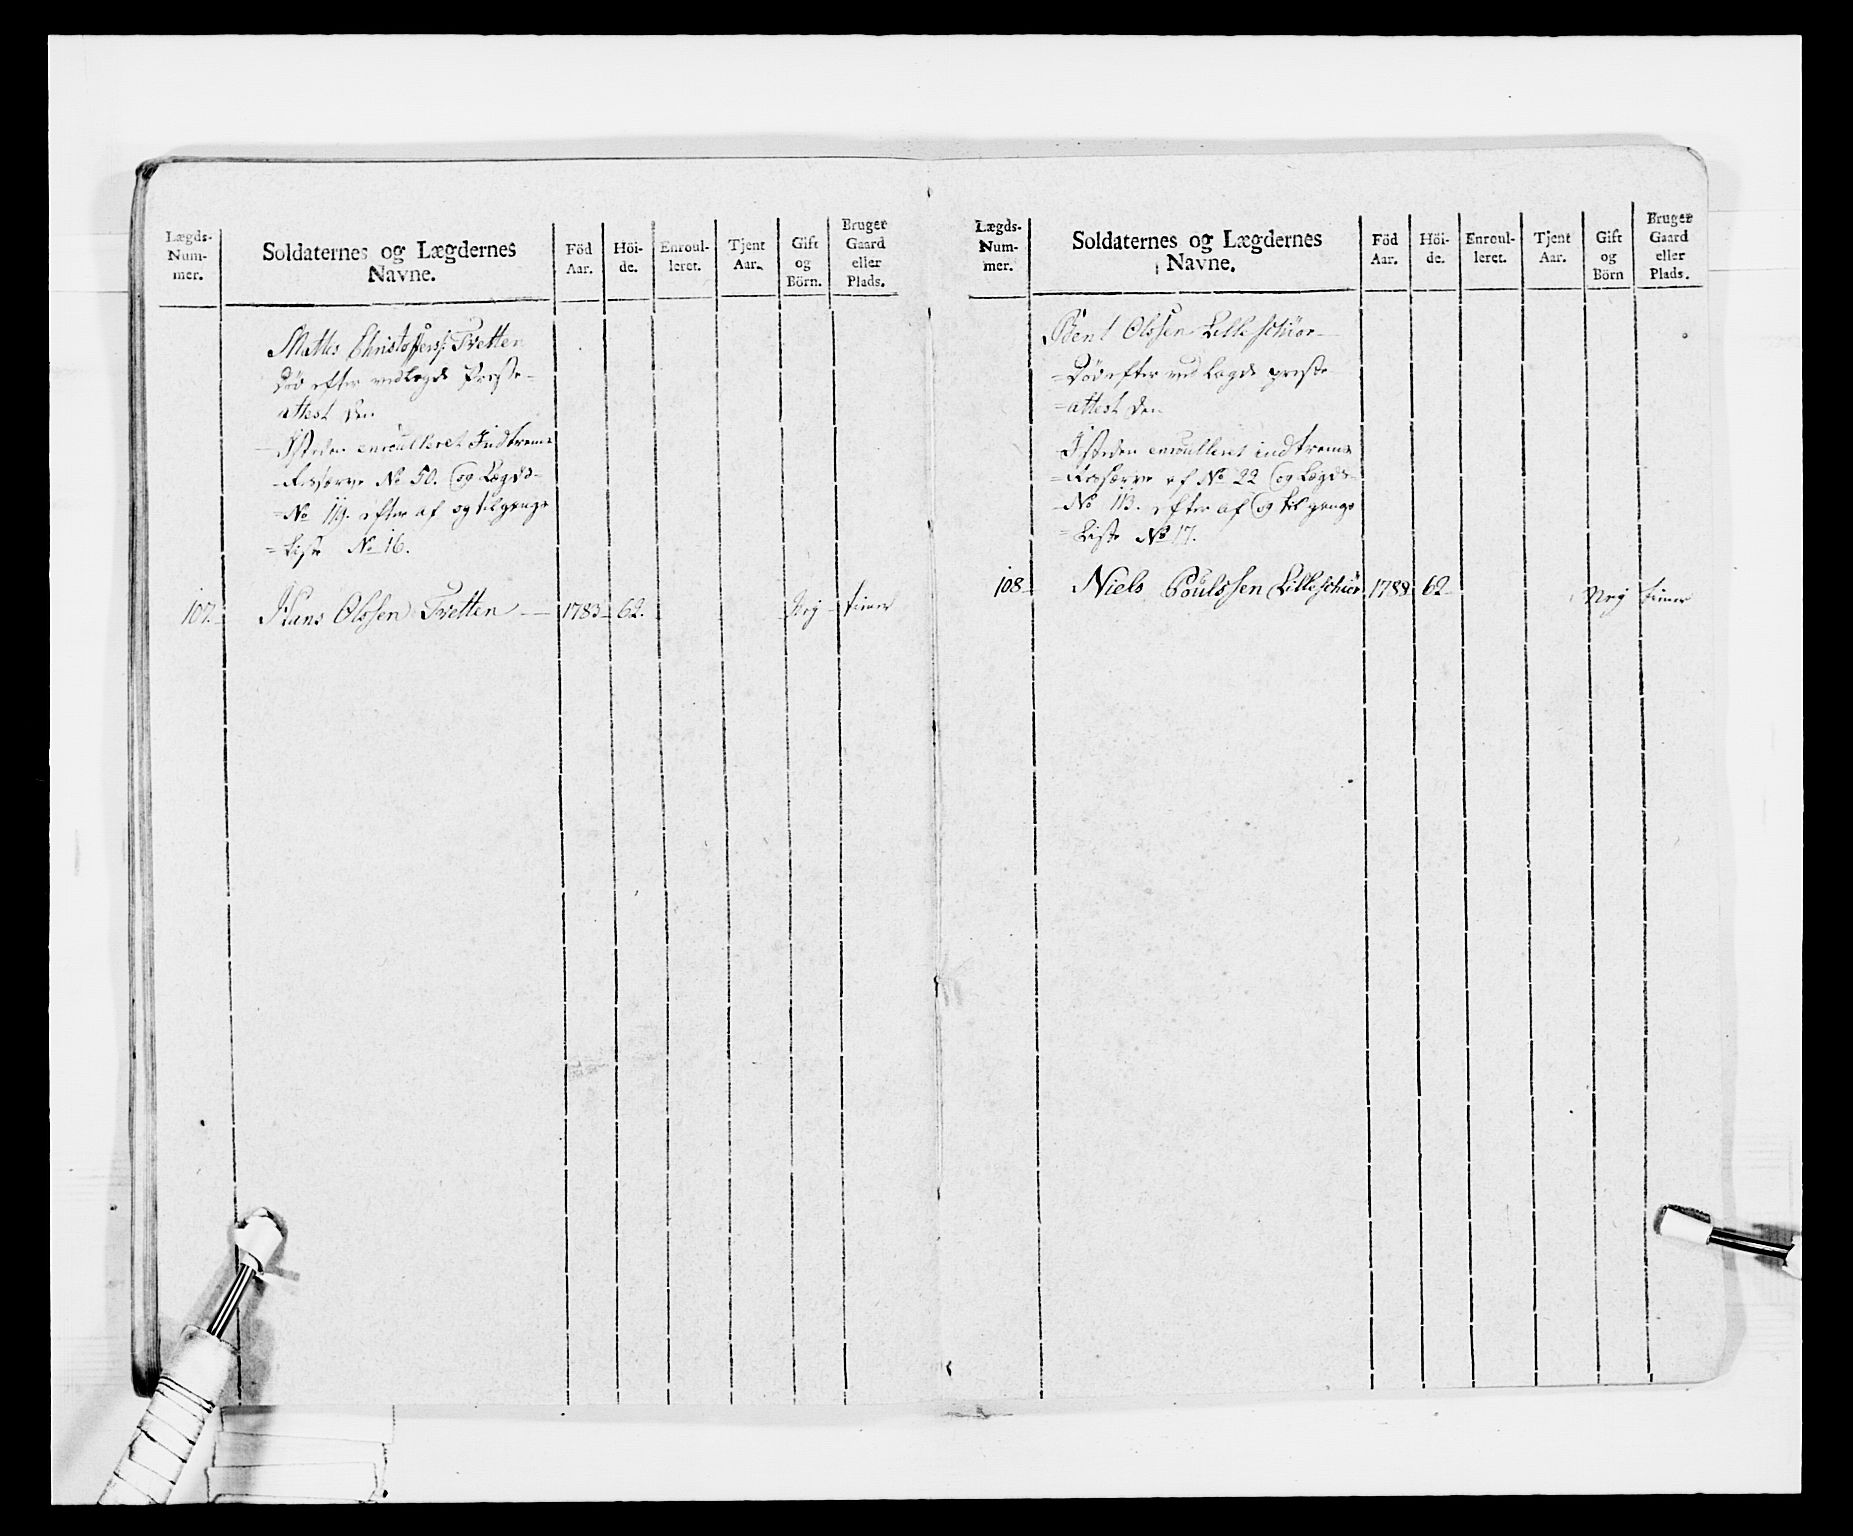 Lægds-Num-mer. Soldaternes og Lægdernes Navne. Föd Aar. Höi-de. Enroul-leret. Tjent Aar. Gift og Börn. Bruger Gaard eller Plads.
Mathis Christoffers: Tretten
Död efter vedlagde Præste-
attest den
Isteden enroulleret Indtreme
Reserve No 50. og Lægds-
No 119. efter af og tilgangs
Liste No 16.
107. Hans Olssen Tretten 1783 62. Nej tiener
Lægds-Num-mer. Soldaternes og Lægdernes Navne. Föd Aar. Höi-de. Enroul-leret. Tjent Aar. Gift og Börn Bruger Gaard eller Plads.
Bent Olssen Lilleschiør
Död efter vedlagde præste
attest den
Isteden enroulleret indtreme
Reserve af No 22 og Lægds-
No 113. efter af og tilgangs
Liste No 17.
108 Niels Poulssen Lilleschiør 1788 62 Nej tiener